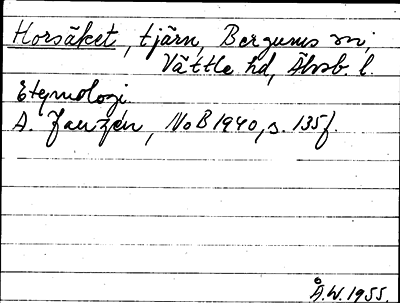 Horsäket, tjärn, Bergums sn,
Vättle hd, Älvsb. l.
Etymologi
A. Janzén, NoB 1940, s. 135f.
Å.W. 1955.